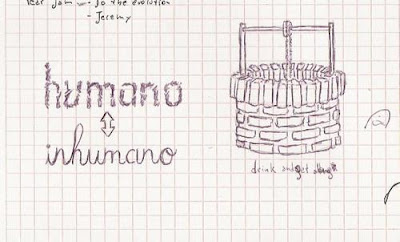 Pearl Jam - Do the evolution
- Jeremy
humano
inhumano
drink and get